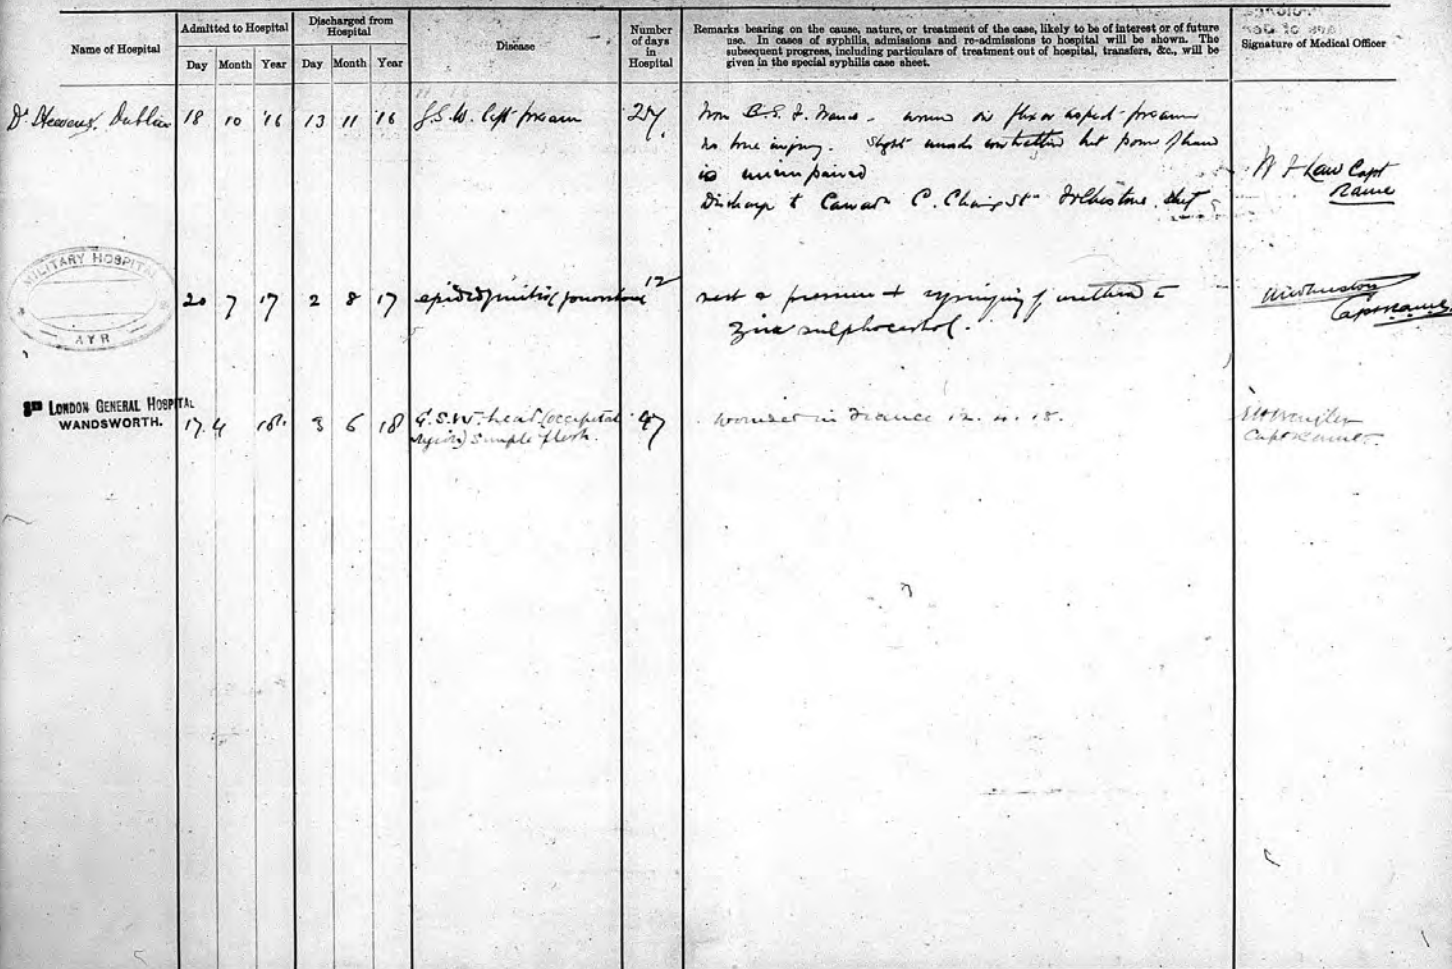 Name of Hospital
Admitted to Hospital
Day Month Year
Discharged from
Hospital
Day Month Year
Disease
Number
of days
in
Hospital
Remarks bearing on the cause, nature, or treatment of the case, likely to be of interest or of future
use. In cases of syphilis, admissions and re-admissions to hospital will be shown. The
subsequent progress, including particulars of treatment out of hospital, transfers, &c., will be
given in the special syphilis case sheet.
Signature of Medical Officer
Dr Steevens, Dublin 18 10 '16 13 11 '16 G.S.W. left forearm 27
from B.E.F. France. wound on flexor aspect forearm
no bone injury. Slight muscle contraction but power of hand
is unimpaired
Discharge to Canadn C. Folkestone
W F Law Capt
RAMC
MILITARY HOSPITAL
AYR
20 7 17 2 8 17 12
rest & pressure + syringing of urethra c
zinc sulphocarbol.
Capt RAMC
3RD LONDON GENERAL HOSPITAL
WANDSWORTH.
17. 4 18. 3 6 18 G.S.W. head (occipital 47 wounded in France 12. 4. 18.
region) simple flesh.
Capt RAMC